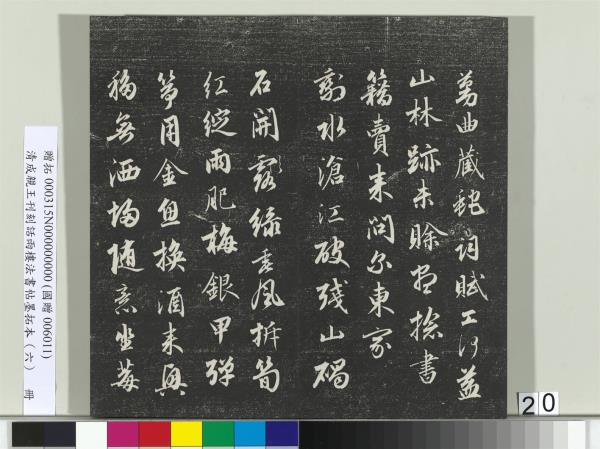 蔓曲藏蛇詞賦工何益
山林跡未賒盡捻書
籍賣來問尔東家
剩水滄江破殘山碣
石開露綠垂風折筍
紅綻雨肥梅銀甲彈
箏用金魚換酒來興
移無洒掃隨意坐莓
贈拓 000315N000000000 (國贈 006011)
清成親王刊刻話雨樓法書帖墨拓本（六） 冊
20